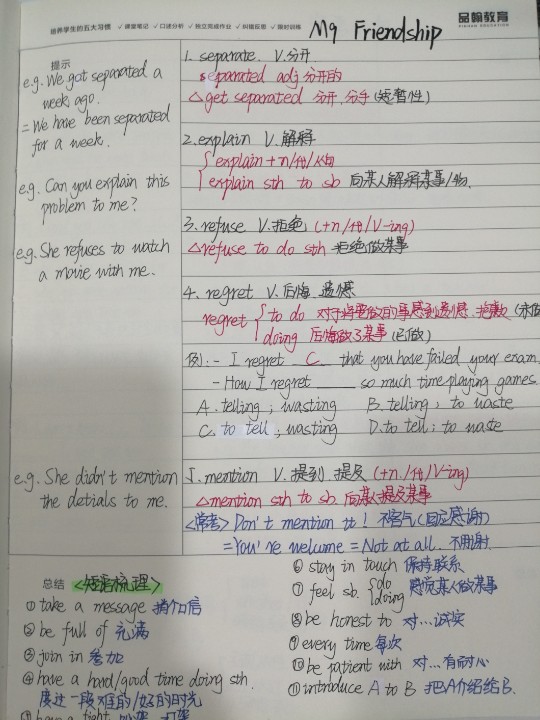 培养学生的五大习惯 ✓课堂笔记 ✓口述分析 ✓独立完成作业 ✓纠错反思 ✓限时训练
M9 Friendship
品翰教育
提示
e.g. We got separated a
week ago.
= We have been separated
for a week.
e.g. Can you explain this
problem to me?
e.g. She refuses to watch
a movie with me.
e.g. She didn't mention
the detials to me.
1. separate. V.分开
separated adj 分开的
△get separated 分开.分手(短暂性)
2.explain V.解释
explain + n/代/从句
explain sth to sb 向某人解释某事/物.
3. refuse V.拒绝 (+n/代/V-ing)
△refuse to do sth 拒绝做某事
4. regret V.后悔 遗憾
regret to do 对于将要做的事感到遗憾.抱歉(未做
doing 后悔做了某事(已做)
例:- I regret C that you have failed your exam.
- How I regret ____ so much time playing games.
A. telling ; wasting B. telling ; to waste
C. to tell ; wasting D. to tell ; to waste
5. mention V.提到.提及 (+n./代/V-ing)
△mention sth to sb 向某人提及某事
<常考> Don't mention it! 不客气(回应感谢)
=You're welcome = Not at all. 不用谢.
总结 <短语梳理>
① take a message 捎个口信
② be full of 充满
③ join in 参加
④ have a hard/good time doing sth.
度过一段艰难的/好的时光
⑥ stay in touch 保持联系
⑦ feel sb. do
doing 感觉某人做某事
⑧ be honest to 对...诚实
⑨ every time 每次
⑩ be patient with 对...有耐心
⑪ introduce A to B 把A介绍给B.